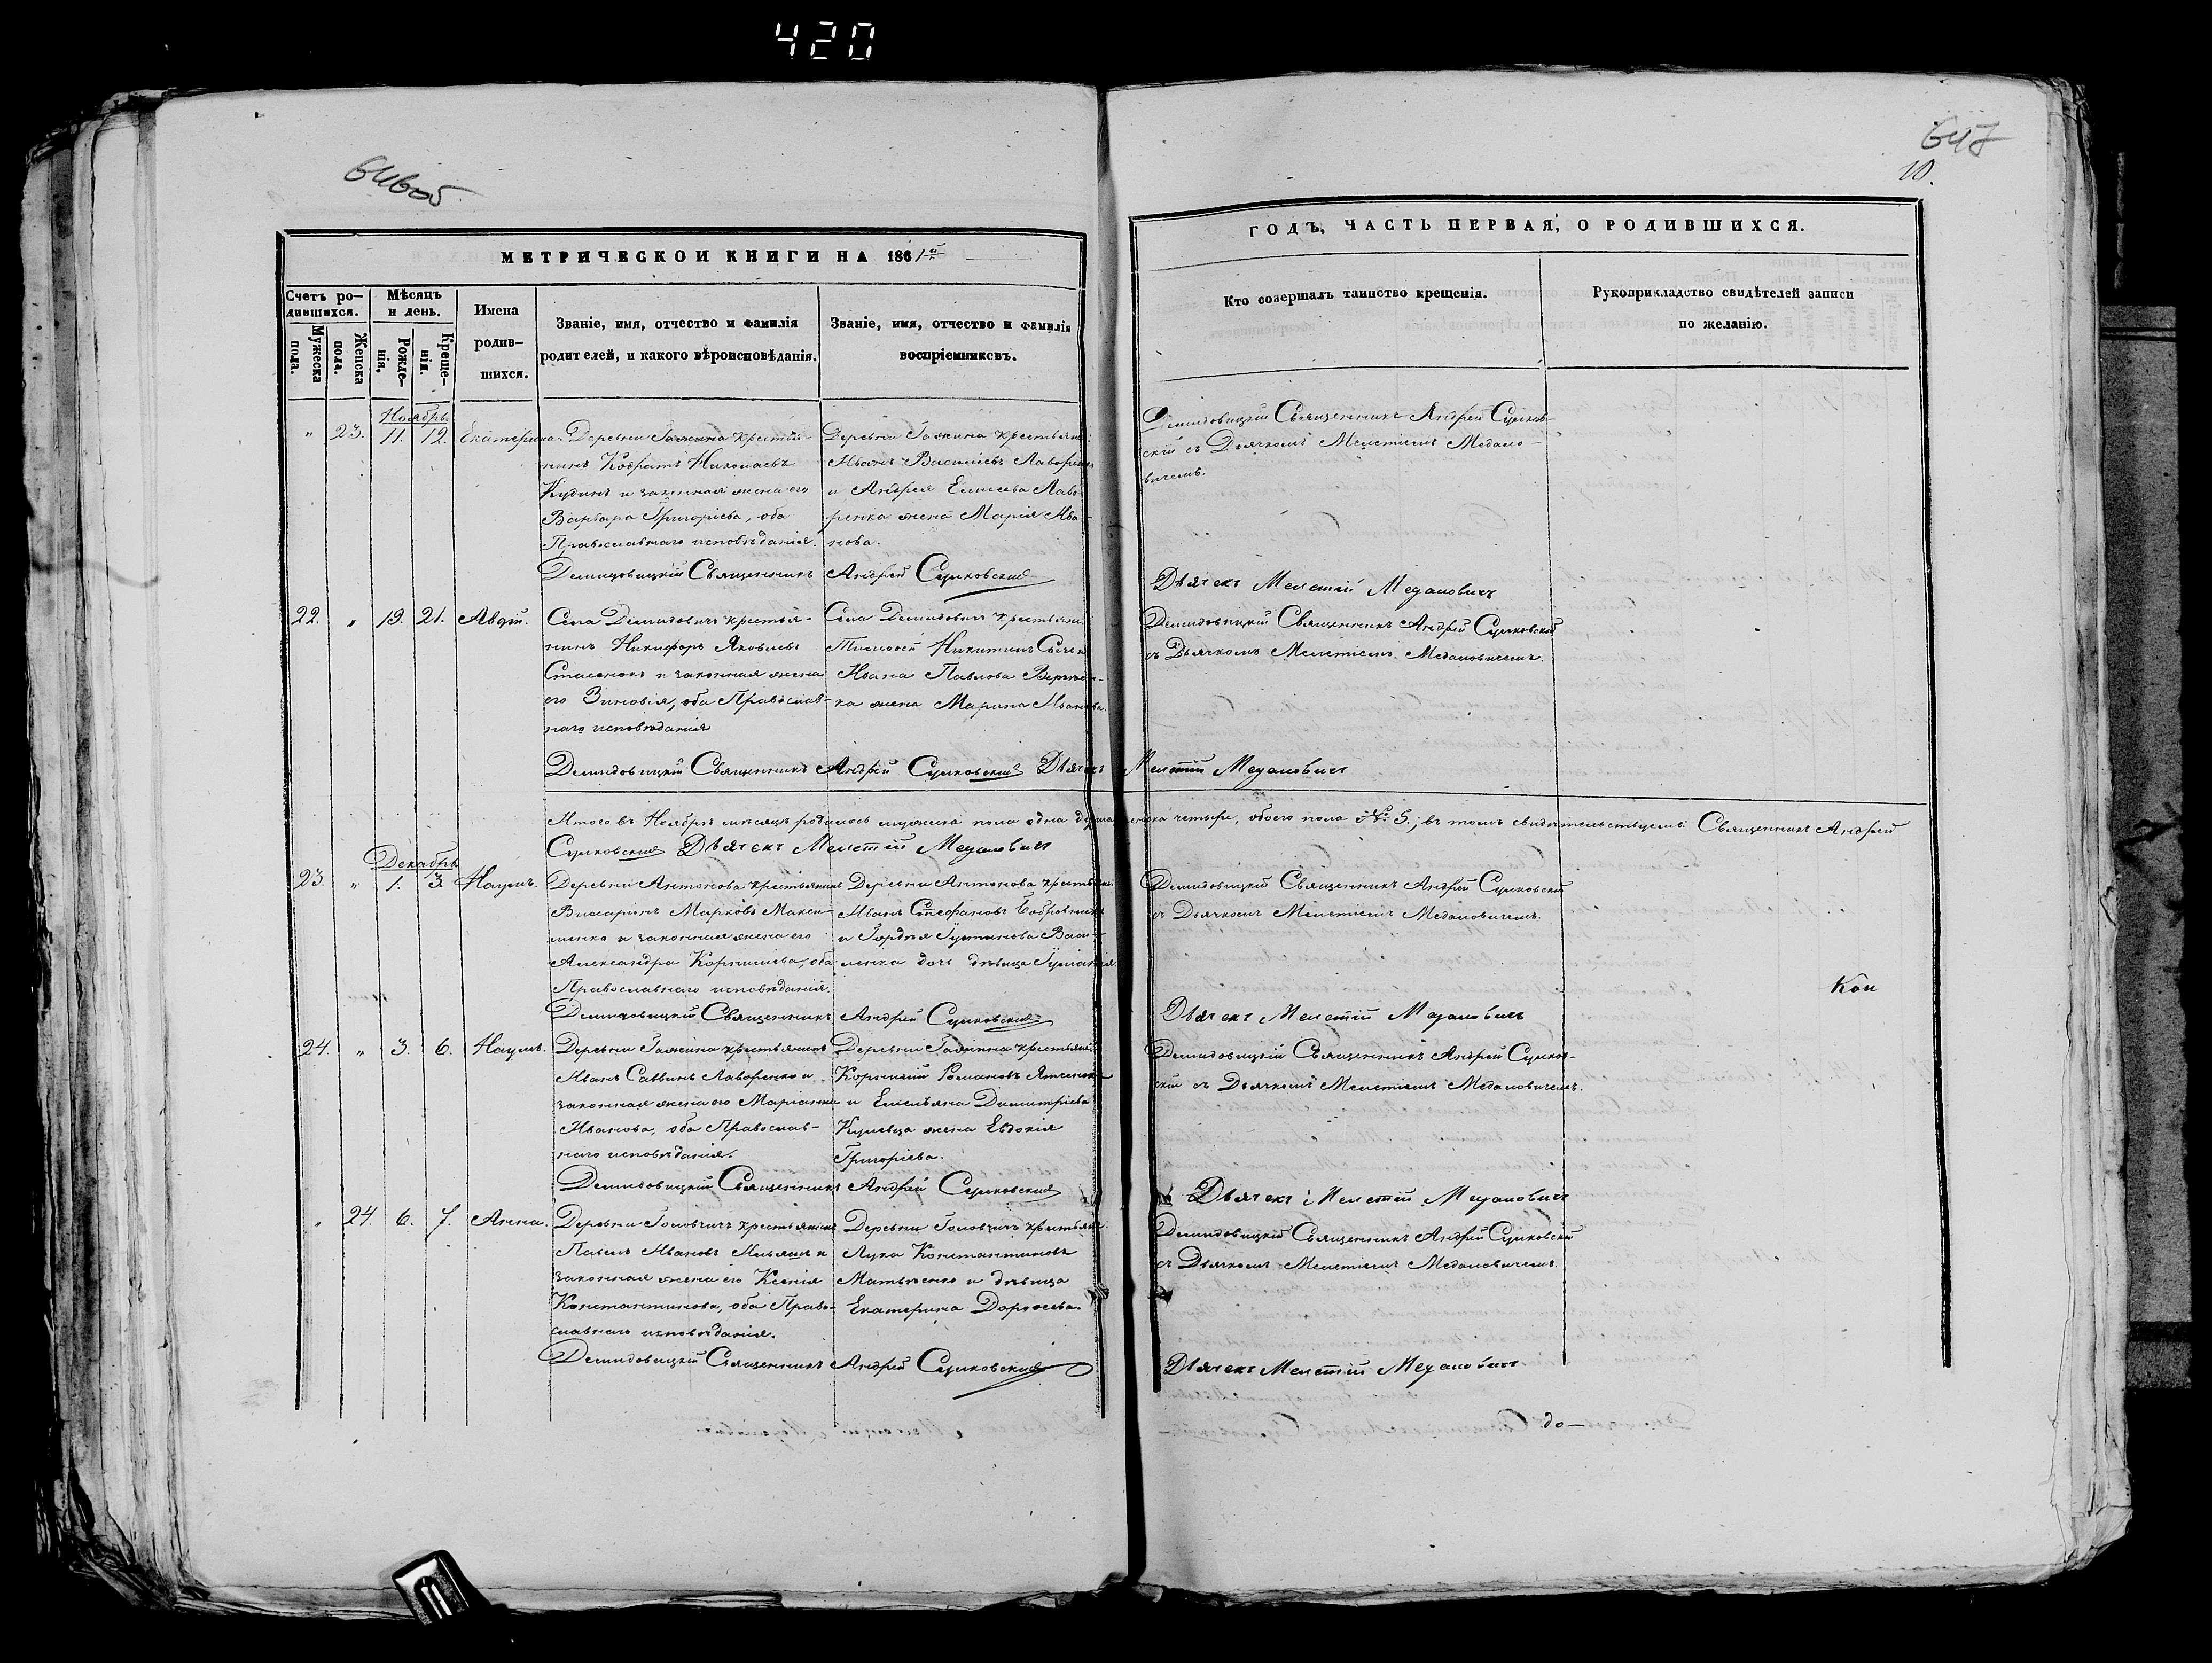 420
646об
647
10.
МЕТРИЧЕСКОЙ КНИГИ НА 1861й
ГОДЪ, ЧАСТЬ ПЕРВАЯ, О РОДИВШИХСЯ.
Счетъ ро-
дившихся.
Мужеска пола.
Женска пола.
Мѣсяцъ
и день.
Рожде-
нія.
Креще-
нія.
Имена
родив-
шихся.
Званіе, имя, отчество и фамилія
родителей, и какого вѣроисповѣданія.
Званіе, имя, отчество и фамилія
воспріемниковъ.
Кто совершалъ таинство крещенія.
Рукоприкладство свидѣтелей записи
по желанію.
Ноябрь
" 23. 11. 12. Екатерина
Деревни Гажина крестья-
нинъ Кодратъ Николаевъ
Кудинъ и законная жена его
Варвара Григоріева, оба
Православнаго исповѣданія.
Деревни Гажина крестьяне:
Иванъ Васильевъ Лавренко
и Андрея Елисеева Лаво-
ренка жена Марія Ива-
нова.
Демидовицкій Священникъ Андрей Сушков-
скій съ Дьячкомъ Мелетіемъ Медало-
вичемъ.
Демидовицкій Священникъ Андрей Сушковскій
Дьячекъ Мелетій Медаловичъ
22. " 19. 21. Авдій.
Села Демидовичъ крестья-
нинъ Никифоръ Яковлевъ
Стасенокъ и законная жена
его Зиновія, оба Православ-
наго исповѣданія
Села Демидовичъ крестьяне:
Тимофей Никитинъ
Ивана Павлова
ка жена Марина Иванова
Демидовицкій Священникъ Андрей Сушковскій
съ Дьячкомъ Мелетіемъ Медаловичемъ.
Демидовицкій Священникъ Андрей Сушковскій Дьячекъ Мелетій Медаловичъ
Итого въ Ноябрѣ мѣсяцѣ родилось мужеска пола одна душа женска четыре, обоего пола № 5.; въ томъ свидѣтельствуемъ: Священникъ Андрей
Сушковскій Дьячекъ Мелетій Медаловичъ
Декабрь
23. " 1. 3. Наумъ.
Деревни Антонова крестьянинъ
Виссаріонъ Марковъ Макси-
менко и законная жена его
Александра Корнилиева, оба
Православнаго исповѣданія.
Деревни Антонова крестьяне:
Иванъ Стефановъ
и Гордѣя Густинова Васи-
ленка дочь дѣвица Іуліанія
Демидовицкій Священникъ Андрей Сушковскій
съ Дьячкомъ Мелетіемъ Медаловичемъ.
Кон
Демидовицкій Священникъ Андрей Сушковскій
Дьячекъ Мелетій Медаловичъ
24. " 3. 6. Наумъ.
Деревни Гажина крестьянинъ
Иванъ Саввинъ Лавренко и
законная жена его Маріанна
Иванова, оба Православ-
наго исповѣданія.
Деревни Гажина крестьяне:
Корнилій Романовъ
и Емельяна Димитріева
Кулевца жена Евдокія
Григоріева.
Демидовицкій Священникъ Андрей Сушков-
скій съ Дьячкомъ Мелетіемъ Медаловичемъ.
Демидовицкій Священникъ Андрей Сушковскій
Дьячекъ Мелетій Медаловичъ
" 24. 6. 7. Анна.
Деревни Головчичъ крестьянинъ
Павелъ Ивановъ Ильяшъ и
законная жена его Ксенія
Константинова, оба Право-
славнаго исповѣданія.
Деревни Головчичъ крестьяне:
Лука Константиновъ
Матвѣенко и дѣвица
Екатерина Дорофеева.
Демидовицкій Священникъ Андрей Сушковскій
съ Дьячкомъ Мелетіемъ Медаловичемъ.
Демидовицкій Священникъ Андрей Сушковскій
Дьячекъ Мелетій Медаловичъ
до—